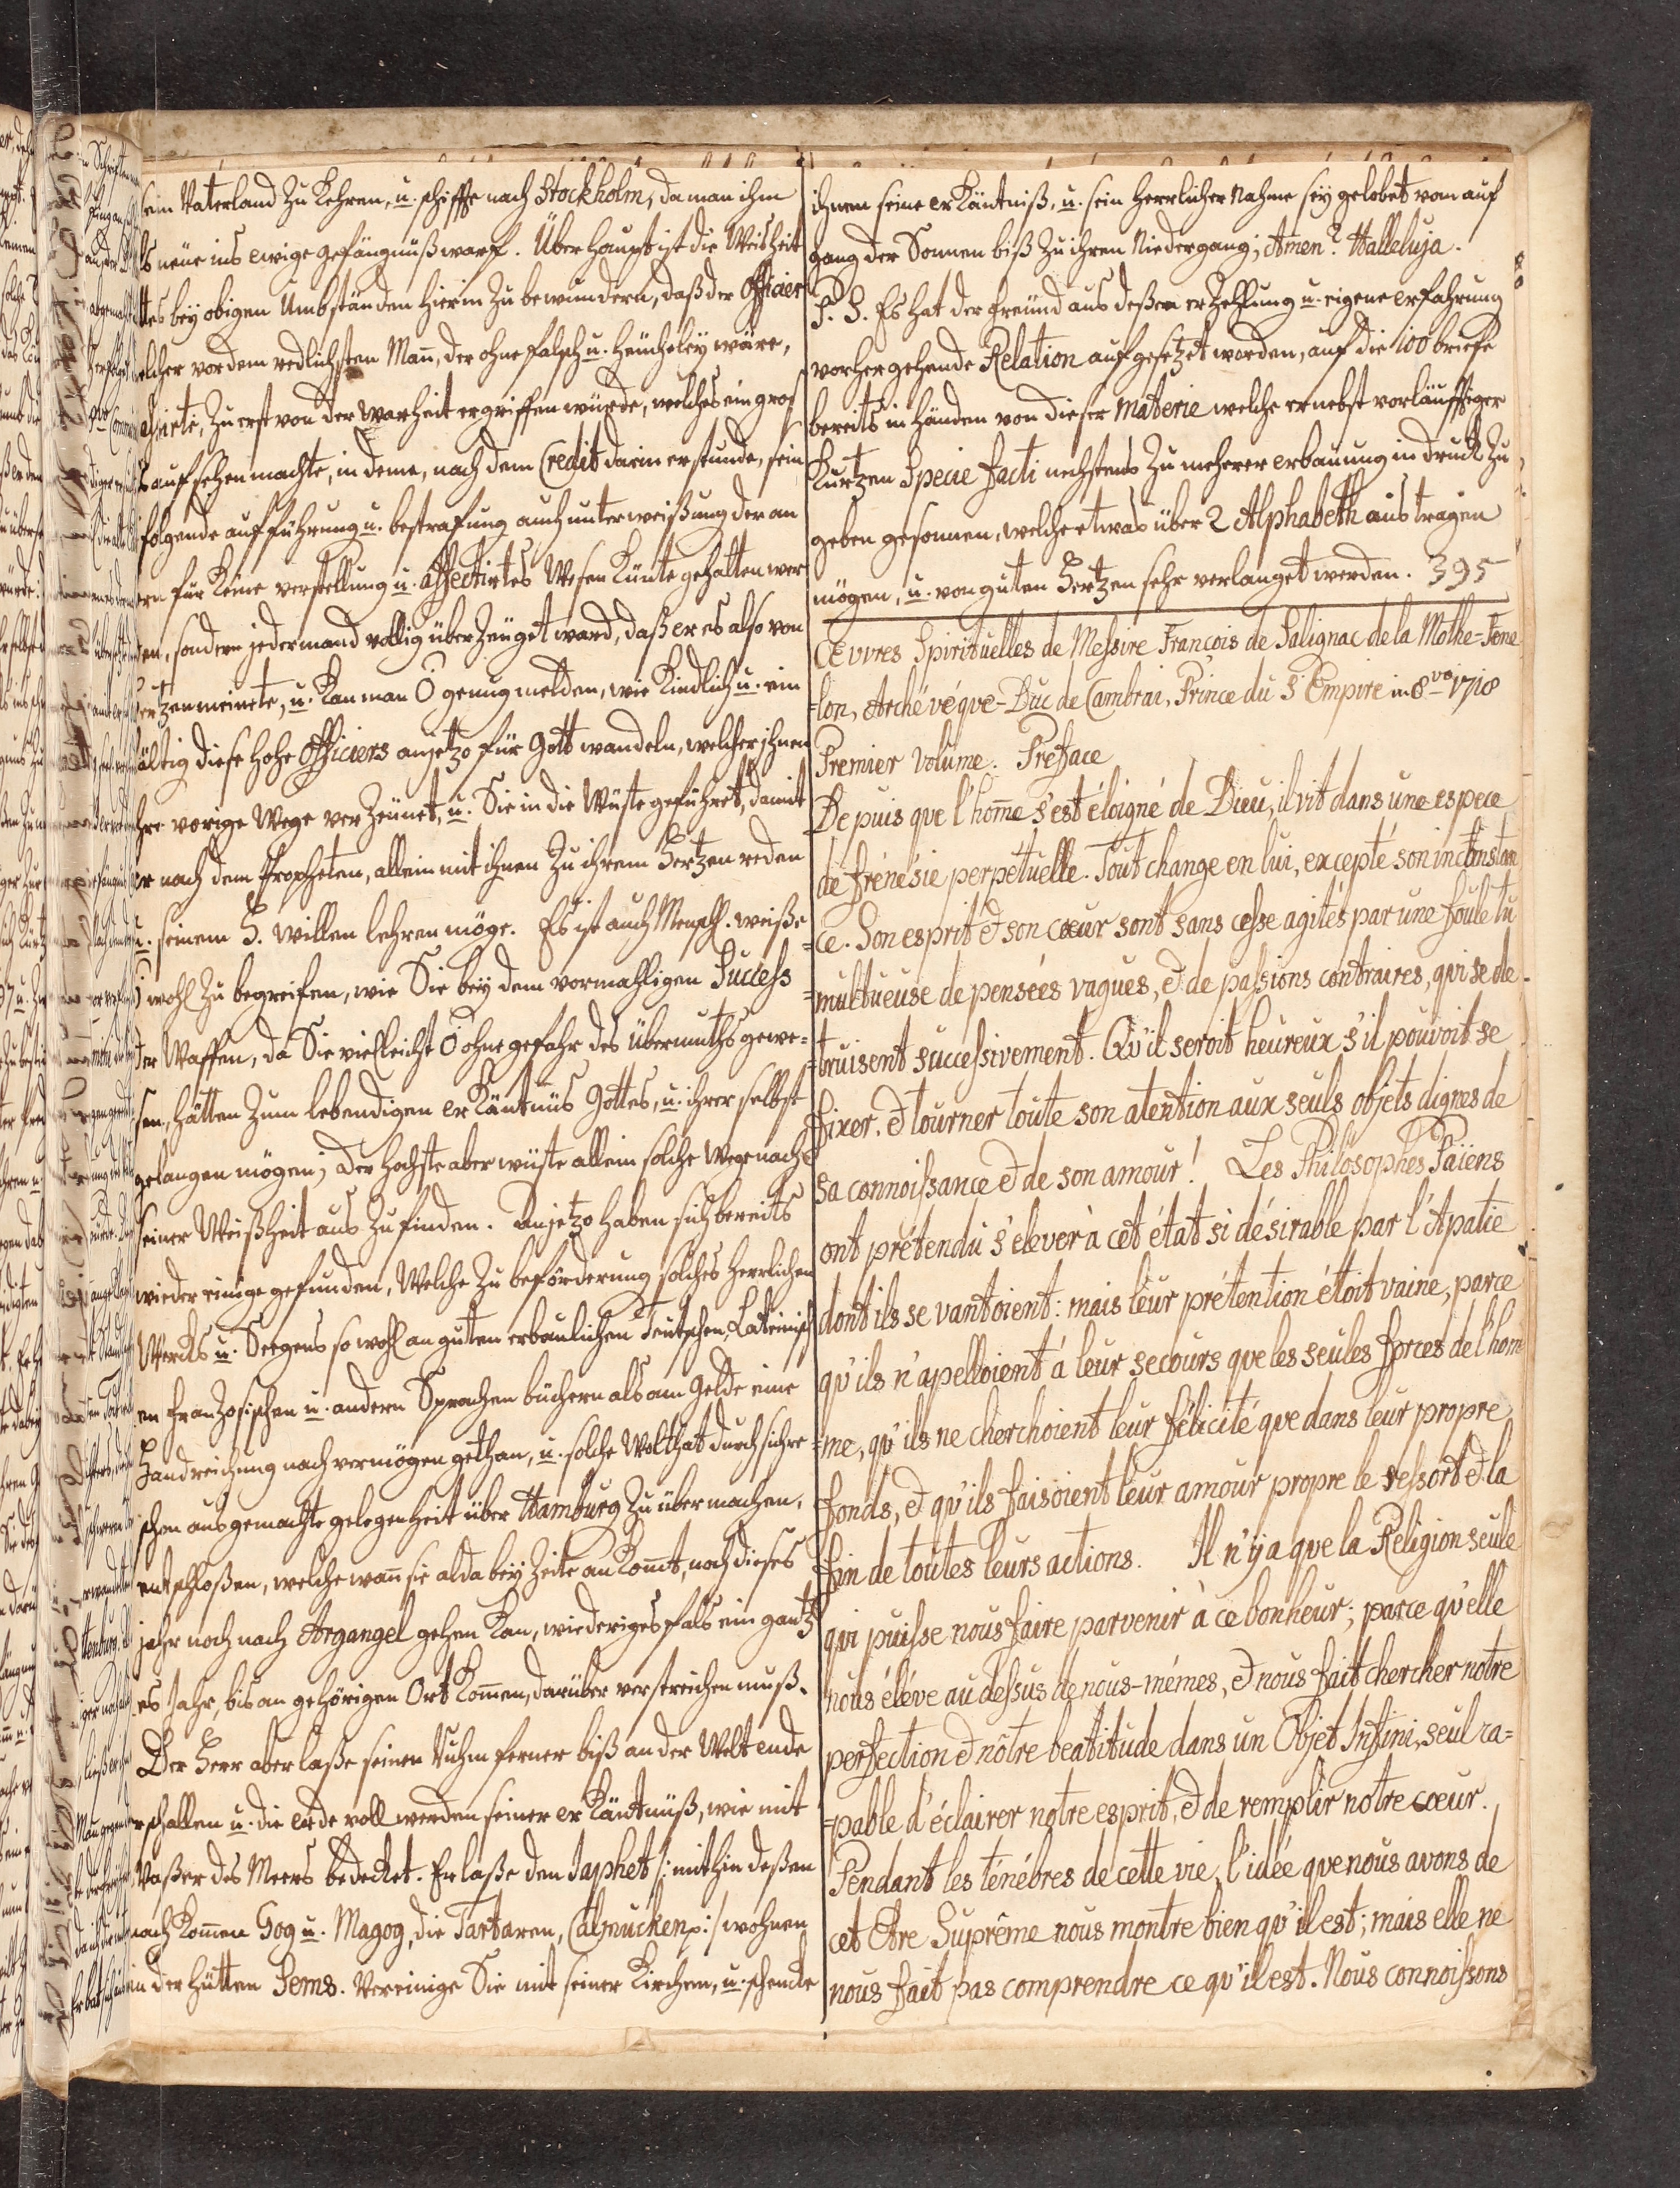 sein Vaterland zu Kehren, u. schiffte nach Stockholm, da man ihm
neue ins ewige gefängnüß warf. Überhaupt ist die Weisheit
bey obigen Umbständen hierin zu bewundern, daß der Officier
welcher vor dem redlichsten Mañ, der ohne falsch u. heucheley wäre,
zu erst von der warheit ergriffen würde, welches ein groß
aufsehen machte, in deme, nach dem Credit darin er stunde, sein
folgende aufführung u. bestrafung auch unterweißung der an
ern für Keine verstellung u. affectirtes Wesen Künte gehalten wer
den, sondern jedermand vollig überzeuget ward, daß er es also von
Hertzen meinete, u. Kan man O genug melden, wie Kindlich u. ein
fältig diese hohe Officiers anjetzo für Gott wandeln, welcher ihnen
ihre vorige Wege verzeunet, u. Sie in die Wüste geführet, damit
er nach dem Propheten, allein mit ihnen zu ihrem Hertzen reden
u. seinem H. willen lehren möge. Es ist auch Menschl. weiße
wohl zu begreifen, wie Sie bey dem vormahligen Success
der Waffen, da Sie vielleicht O ohne gefahr des Übermuths gewe-
sen, hätten zum lebendigen erKäntnüs Gottes, u. ihrer selbst
gelangen mögen; der hochste aber wuste allein solche Wege nach
seiner Weißheit aus zu finden. Anjetzo haben sich bereits
wieder einige gefunden, Welche zu beförderung solches herrlichen
Wercks u. Seegens so wohl an guten erbaulichen Teutschen, Lateinisch
en franzosischen u. andern Sprachen büchern als am Gelde eine
Handreichung nach vermögen gethan, u. solche Wolthat durch sichre
schon ausgemachte gelegenheit über Hamburg zu übermachen,
entschloßen, welche wañ sie alda bey Zeite an Komt, noch dieses
jahr noch nach Argangel gehen Kan, wiedriges fals ein gantz
es Jahr, bis an gehörigen Ort Komen, darüber verstreichen muß.
Der Herr aber laße seinen Ruhm ferner biß an der Welt ende
erschallen u. die erde voll werden seiner erKäntnüß, wie mit
Waßer des Meers bedecket. Er laße den Japhet /: mithin deßen
nachKomen Gog u. Magog, die Tartaren, Calmucken p:/ wohnen
in der Hütten Sems. Vereinige Sie mit seiner Kirchen, u. schencke
ihnen seine erKäntniß, u. sein herrlicher Nahme sey gelobet vom auf
gang der Sonnen biß zu ihren Niedergang; Amen? Halleluja.
P. S. Es hat der freund aus deßen erzehlung u. eigene erfahrung
vorhergehende Relation aufgesetzet worden, auf die 100 briefe
bereits in händen von dieser Materie welche er nebst vorläuffiger
Kurtzen Specie facti nechstens zu mehrer erbauung in druck zu
geben gesonnen, welche etwas über 2 Alphabeth austragen
mögen, u. von guten Hertzen sehr verlanget werden. 395
Œuvres Spirituelles de Messire François de Salignac de la Mothe-Fene
=lon, Archévéque-Duc de Cambrai, Prince du S Empire in 8vo 1718
Premier volume. Preface
Depuis que l'home s'est éloigné de Dieu, il vit dans une espece
de frénésie perpétuelle. Tout change en lui, excepté son inconstan
=ce. Son esprit & son cœur sont sans cesse agités par une foule tu
=multueuse de pensées vagues, & de passions contraires, qui se de-
=truisent successivement. Qu'il seroit heureux s'il pouvoit se
fixer. & tourner toute son atention aux seuls objets dignes de
sa connoissance & de son amour! Les Philosophes Païens
ont prétendu s'élever à cet état si désirable par l'Apatie
dont ils se vantoient: mais leur prétention étoit vaine, parce
qu'ils n'apelloient á leur secours que les seules forces de l'hom
=me, qu'ils ne cherchoient leur félicité que dans leur propre
fonds, & qu'ils faisoient leur amour propre le ressort & la
fin de toutes leurs actions. Il n'y a que la Religion seule
qui puisse nous faire parvenir à ce bonheur; parce qu'elle
nous éléve au dessus de nous-mémes, & nous fait chercher notre
perfection & nôtre beatitude dans un Objet Infini, seul ca=
=pable d'éclairer notre esprit, & de remplir notre cœur.
Pendant les ténébres de cette vie, l'idée que nous avons de
cet Etre Suprême nous montre bien qu'il est; mais elle ne
nous fait pas comprendre ce qu'il est. Nous connoissons